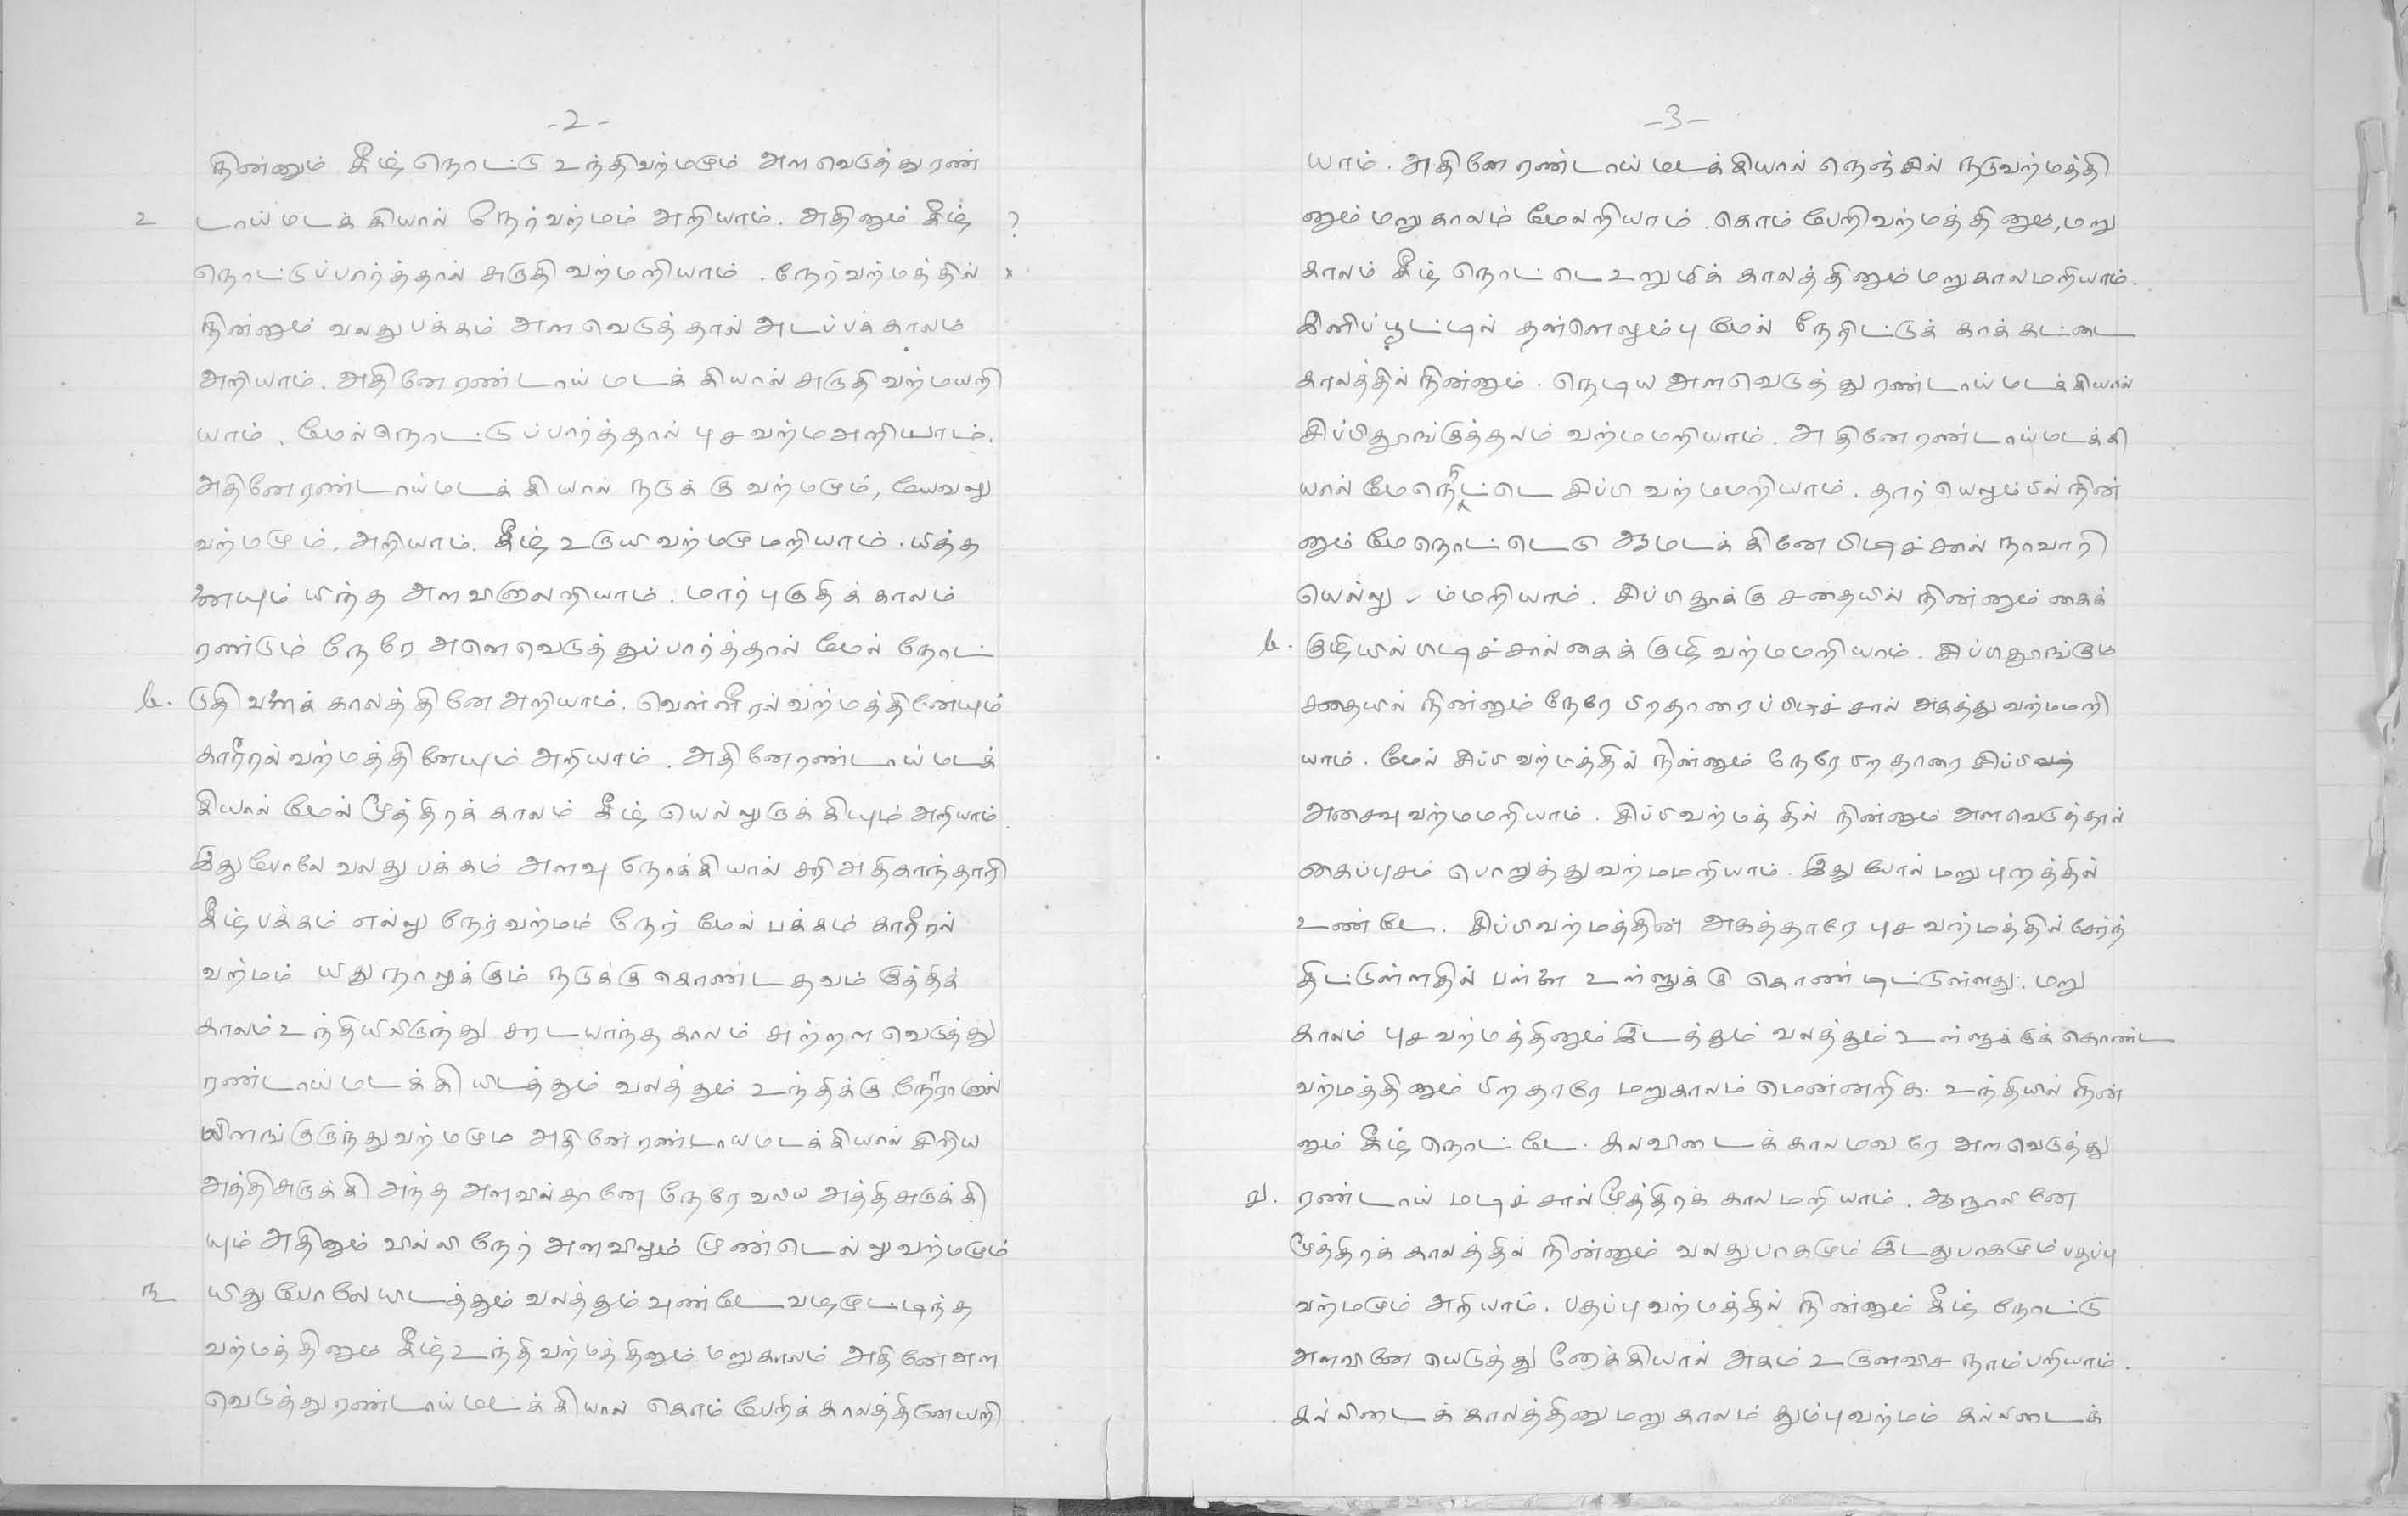 -2-
நின்னும் கீழ் நொட்டு உந்திவற்மமும் அளவெடுத்து ரண்
உ டாய் மடக்கியால் நேர்வற்மம் அறியாம். அதினும் கீழ் ?
நொட்டுப்பார்த்தால் சுருதி வற்மறியாம். நேர்வற்மத்தில் x
நின்னும் வலது பக்கம் அளவெடுத்தால் அடப்பக் காலம்
அறியாம். அதினே ரண்டாய் மடக்கியால் சுருதி வற்மயறி
யாம். மேல் நொட்டுப்பார்த்தால் புச வற்மஅறியாம்.
அதினே ரண்டாய் மடக்கியால் நடுக்கு வற்மமும், வேவலு
வற்மமும். அறியாம். கீழ் உருயி வற்மமுமறியாம். யித்த
னையும் யிந்த அளவினாலறியாம். மார்புகுதிக் காலம்
ரண்டும் நேரே அளவெடுத்துப்பார்த்தால் மேல் நோட்
டுதி வளைக் காலத்தினே அறியாம். வெள்ளீரல் வற்மத்தினேயும்
காரீரல் வற்மத்தினேயும் அறியாம். அதினே ரண்டாய் மடக்
கியால் மேல் மூத்திரக் காலம் கீழ் யெல்லுருக்கியும் அறியாம்.
இது போலே வலது பக்கம் அளவு நொக்கியால் சரி அதிகாந்தாரி
கீழ் பக்கம் எல்லு நேர்வற்மம் நேர் மேல் பக்கம் காரீரல்
வற்மம் யிது நாலுக்கும் நடுக்கு கொண்டதவம் குத்திக்
காலம் உந்தியிலிருந்து சரடயாந்த காலம் சுற்றள வெடுத்து
ரண்டாய் மடக்கி யிடத்தும் வலத்தும் உந்திக்கு நேரானால்
விளங்குருந்து வற்மமும் அதினே ரண்டாய மடக்கியால் சிறிய
அத்திசுருக்கி அந்த அளவில்தானே நேரே வலிய அத்திசுருக்கி
யும் அதினும் வில்லி நேர் அளவிலும் முண்டெல்லு வற்மமும்
ந. யிது போலே யிடத்தும் வலத்தும் வுண்டே வடிமுட்டிந்த
வற்மத்தினும் கீழ் உந்தி வற்மத்தினும் மறுகாலம் அதினே அள
வெடுத்து ரண்டாய் மடக்கியால் கொம்பேறிக் காலத்தினேயறி
-3-
யாம். அதினே ரண்டாய் மடக்கியால் நெஞ்சில் நடுவற்மத்தி
னும் மறுகாலம் மேலறியாம். கொம்பேறி வற்மத்தினும், மறு
காலம் கீழ் நொட்டெ உறுமிக் காலத்தினும் மறுகாலமறியாம்.
இனிப்பூட்டில் தன்னெலும்பு மேல் நேரிட்டுக் காக்கட்டை
காலத்தில் நின்னும். நெடிய அளவெடுத்து ரண்டாய் மடக்கியால்
சிப்பிதூங்குத்தலம் வற்மமறியாம். அதினே ரண்டாய் மடக்கி
யால் மேநொட்டெ சிப்பி வற்மமறியாம். தார் யெலும்பில் நின்
னும் மேநொட்டெடு ஆமடக்கினே பிடிச்சால் நாவாரி
யெல்லு ம்மறியாம். சிப்பிதூக்கு சதையில் நின்னும் கைக்
குழியில் பிடிச்சால் கைக்குழி வற்மமறியாம். சிப்பிதூங்கும்
சதையில் நின்னும் நேரே பிறதாரைப் பிடிச்சால் அகத்து வற்மமறி
யாம். மேல் சிப்பி வற்மத்தில் நின்னும் நேரே பிறதாரை சிப்பி
அசைவு வற்மமறியாம். சிப்பிவற்மத்தில் நின்னும் அளவெடுத்தால்
கைப்புசம் பொறுத்து வற்மமறியாம். இது போல் மறுபுறத்தில்
உண்டே. சிப்பிவற்மத்தின் அகத்தாரே புச வற்மத்தில் சேர்ந்
திட்டுள்ளதில் பள்ளை உள்ளுக்கு கொண்டிட்டுள்ளது. மறு
காலம் புச வற்மத்தினும் இடத்தும் வலத்தும் உள்ளுக்குக் கொண்ட
வற்மத்தினும் பிறதாரே மறுகாலம் மென்னறிக. உந்தியில் நின்
னும் கீழ் நொட்டே. கலவிடைக் காலமவரே அளவெடுத்து
ரண்டாய் மடிச்சால் மூத்திரக் காலமறியாம். ஆநாலினே
மூத்திரக் காலத்தில் நின்னும் வலதுபாகமும் இடதுபாகமும் பதப்பு
வற்மமும் அறியாம். பதப்பு வற்மத்தில் நின்னும் கீழ் நோட்டு
அளவினே யெடுத்து நோக்கியால் அகம் உருளவிச நரம்பறியாம்.
கல்லிடைக் காலத்தினு மறுகாலம் தும்பு வற்மம் கல்லடைக்